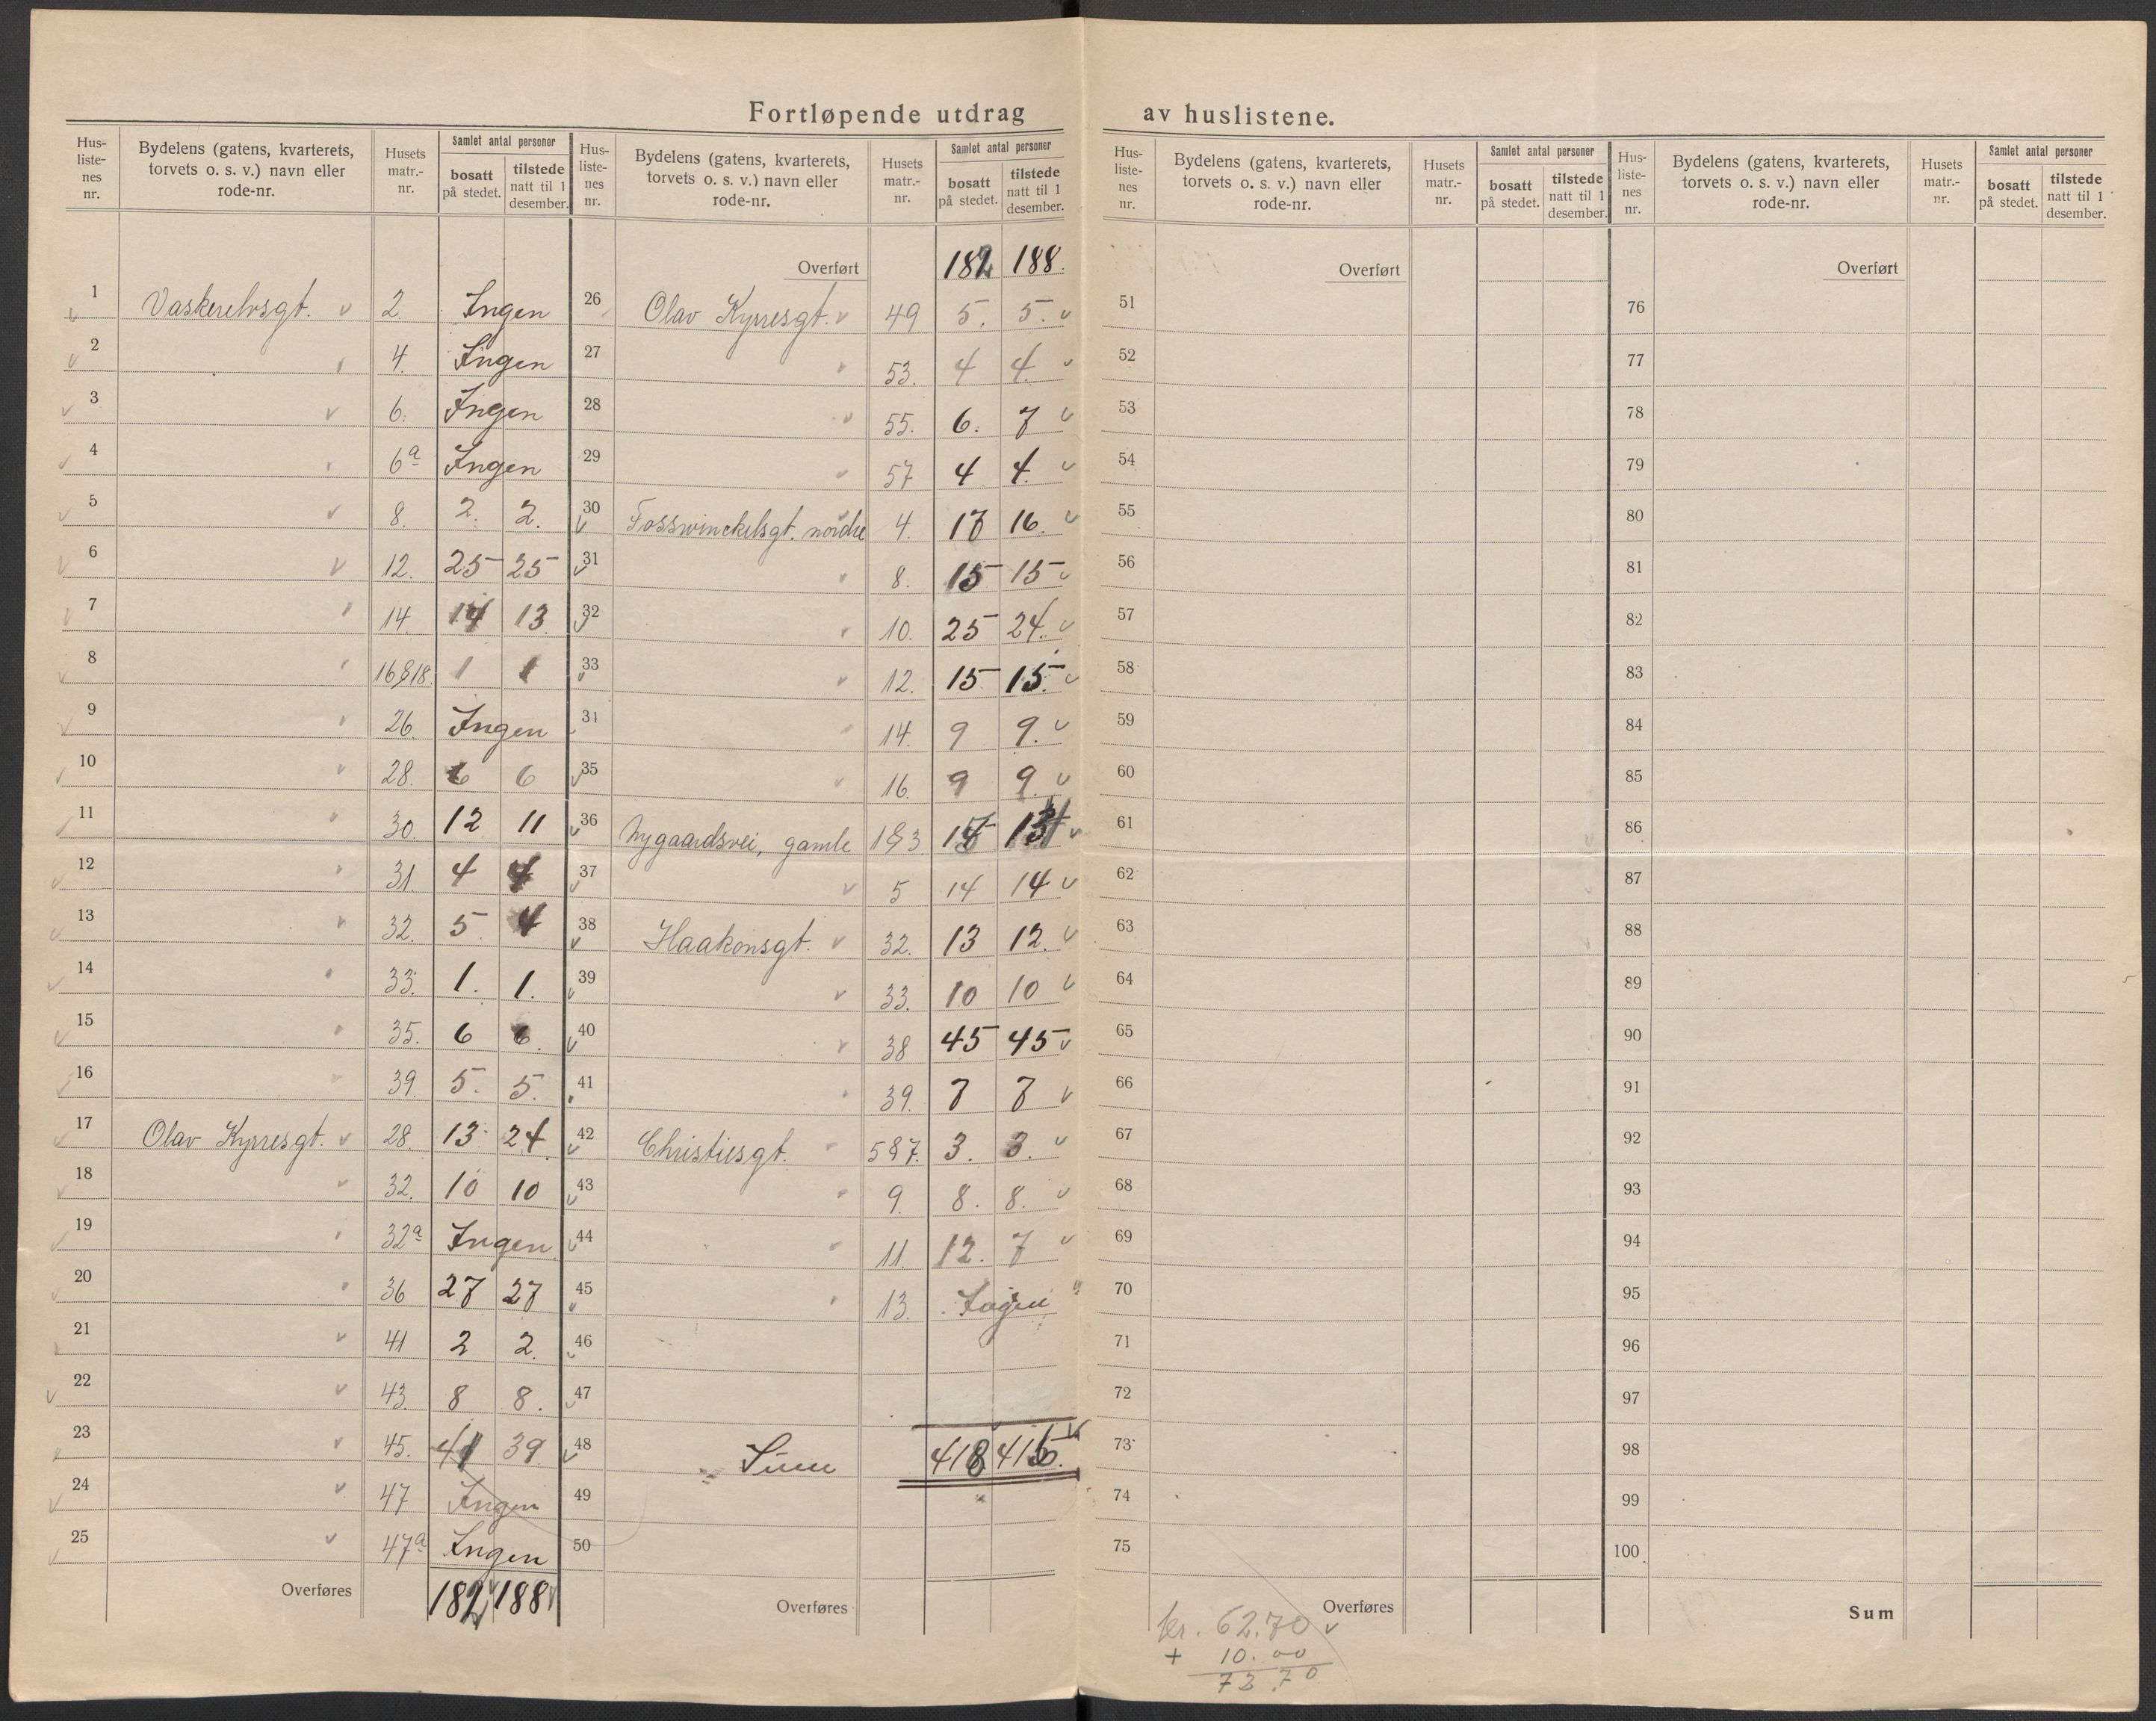 Fortløpende utdrag av huslistene.
Hus-liste-nes nr. Bydelens (gatens, kvarterets, torvets o. s. v.) navn eller rode-nr. Husets matr.-nr. Samlet antal personer bosatt på stedet. tilstede natt til 1 desember.
1 Vaskerelvsgt. 2 Ingen
2 " 4. Ingen
3 " 6. Ingen
4 " 6a Ingen
5 " 8. 2. 2.
6 " 12. 25 25
7 " 14. 14 13
8 " 16&18. 1 1
9 " 26. Ingen
10 " 28. 6 6
11 " 30. 12 11
12 " 31 4 4
13 " 32. 5 4
14 " 33. 1. 1.
15 " 35. 6 6.
16 " 39. 5. 5.
17 Olav Kyrresgt. " 28. 13 24
18 " 32. 10 10
19 " 32a Ingen
20 " 36 27 27
21 " 41 2 2.
22 " 43. 8 8.
23 " 45. 41 39
24 " 47 Ingen
25 " 47a Ingen
Overføres 182 188
Hus-liste-nes nr. Bydelens (gatens, kvarterets, torvets o. s. v.) navn eller rode-nr. Husets matr.-nr. Samlet antal personer bosatt på stedet. tilstede natt til 1 desember.
Overført 182 188.
26 Olav Kyrresgt. 49 5. 5.
27 " 53. 4 4
28 " 55. 6. 7
29 " 57 4 4.
30 Fosswinckelsgt. nordre 4. 17 16.
31 " 8. 15 15
32 " 10. 25 24.
33 " 12. 15 15.
34 " 14. 9 9.
35 " 16. 9 9.
36 Nygaardsvei, gamle 1&3
37 " 5 14 14
38 Haakonsgt. 32. 13 12.
39 " 33. 10 10
40 " 38 45 45
41 " 39. 7 7
42 Christiesgt. 5&7. 3. 3.
43 " 9. 8. 8.
44 " 11. 12. 7
45 " 13. Ingen
46
47
48 Sum 418 416.
49
50
Overføres
Hus-liste-nes nr. Bydelens (gatens, kvarterets, torvets o. s. v.) navn eller rode-nr. Husets matr.-nr. Samlet antal personer bosatt på stedet. tilstede natt til 1 desember.
Overført
51
52
53
54
55
56
57
58
59
60
61
62
63
64
65
66
67
68
69
70
71
72
73
74
75
Overføres
kr. 62.70
+ 10.00
73.70
Hus-liste-nes nr. Bydelens (gatens, kvarterets, torvets o. s. v.) navn eller rode-nr. Husets matr.-nr. Samlet antal personer bosatt på stedet. tilstede natt til 1 desember.
Overført
76
77
78
79
80
81
82
83
84
85
86
87
88
89
90
91
92
93
94
95
96
97
98
99
100
Sum